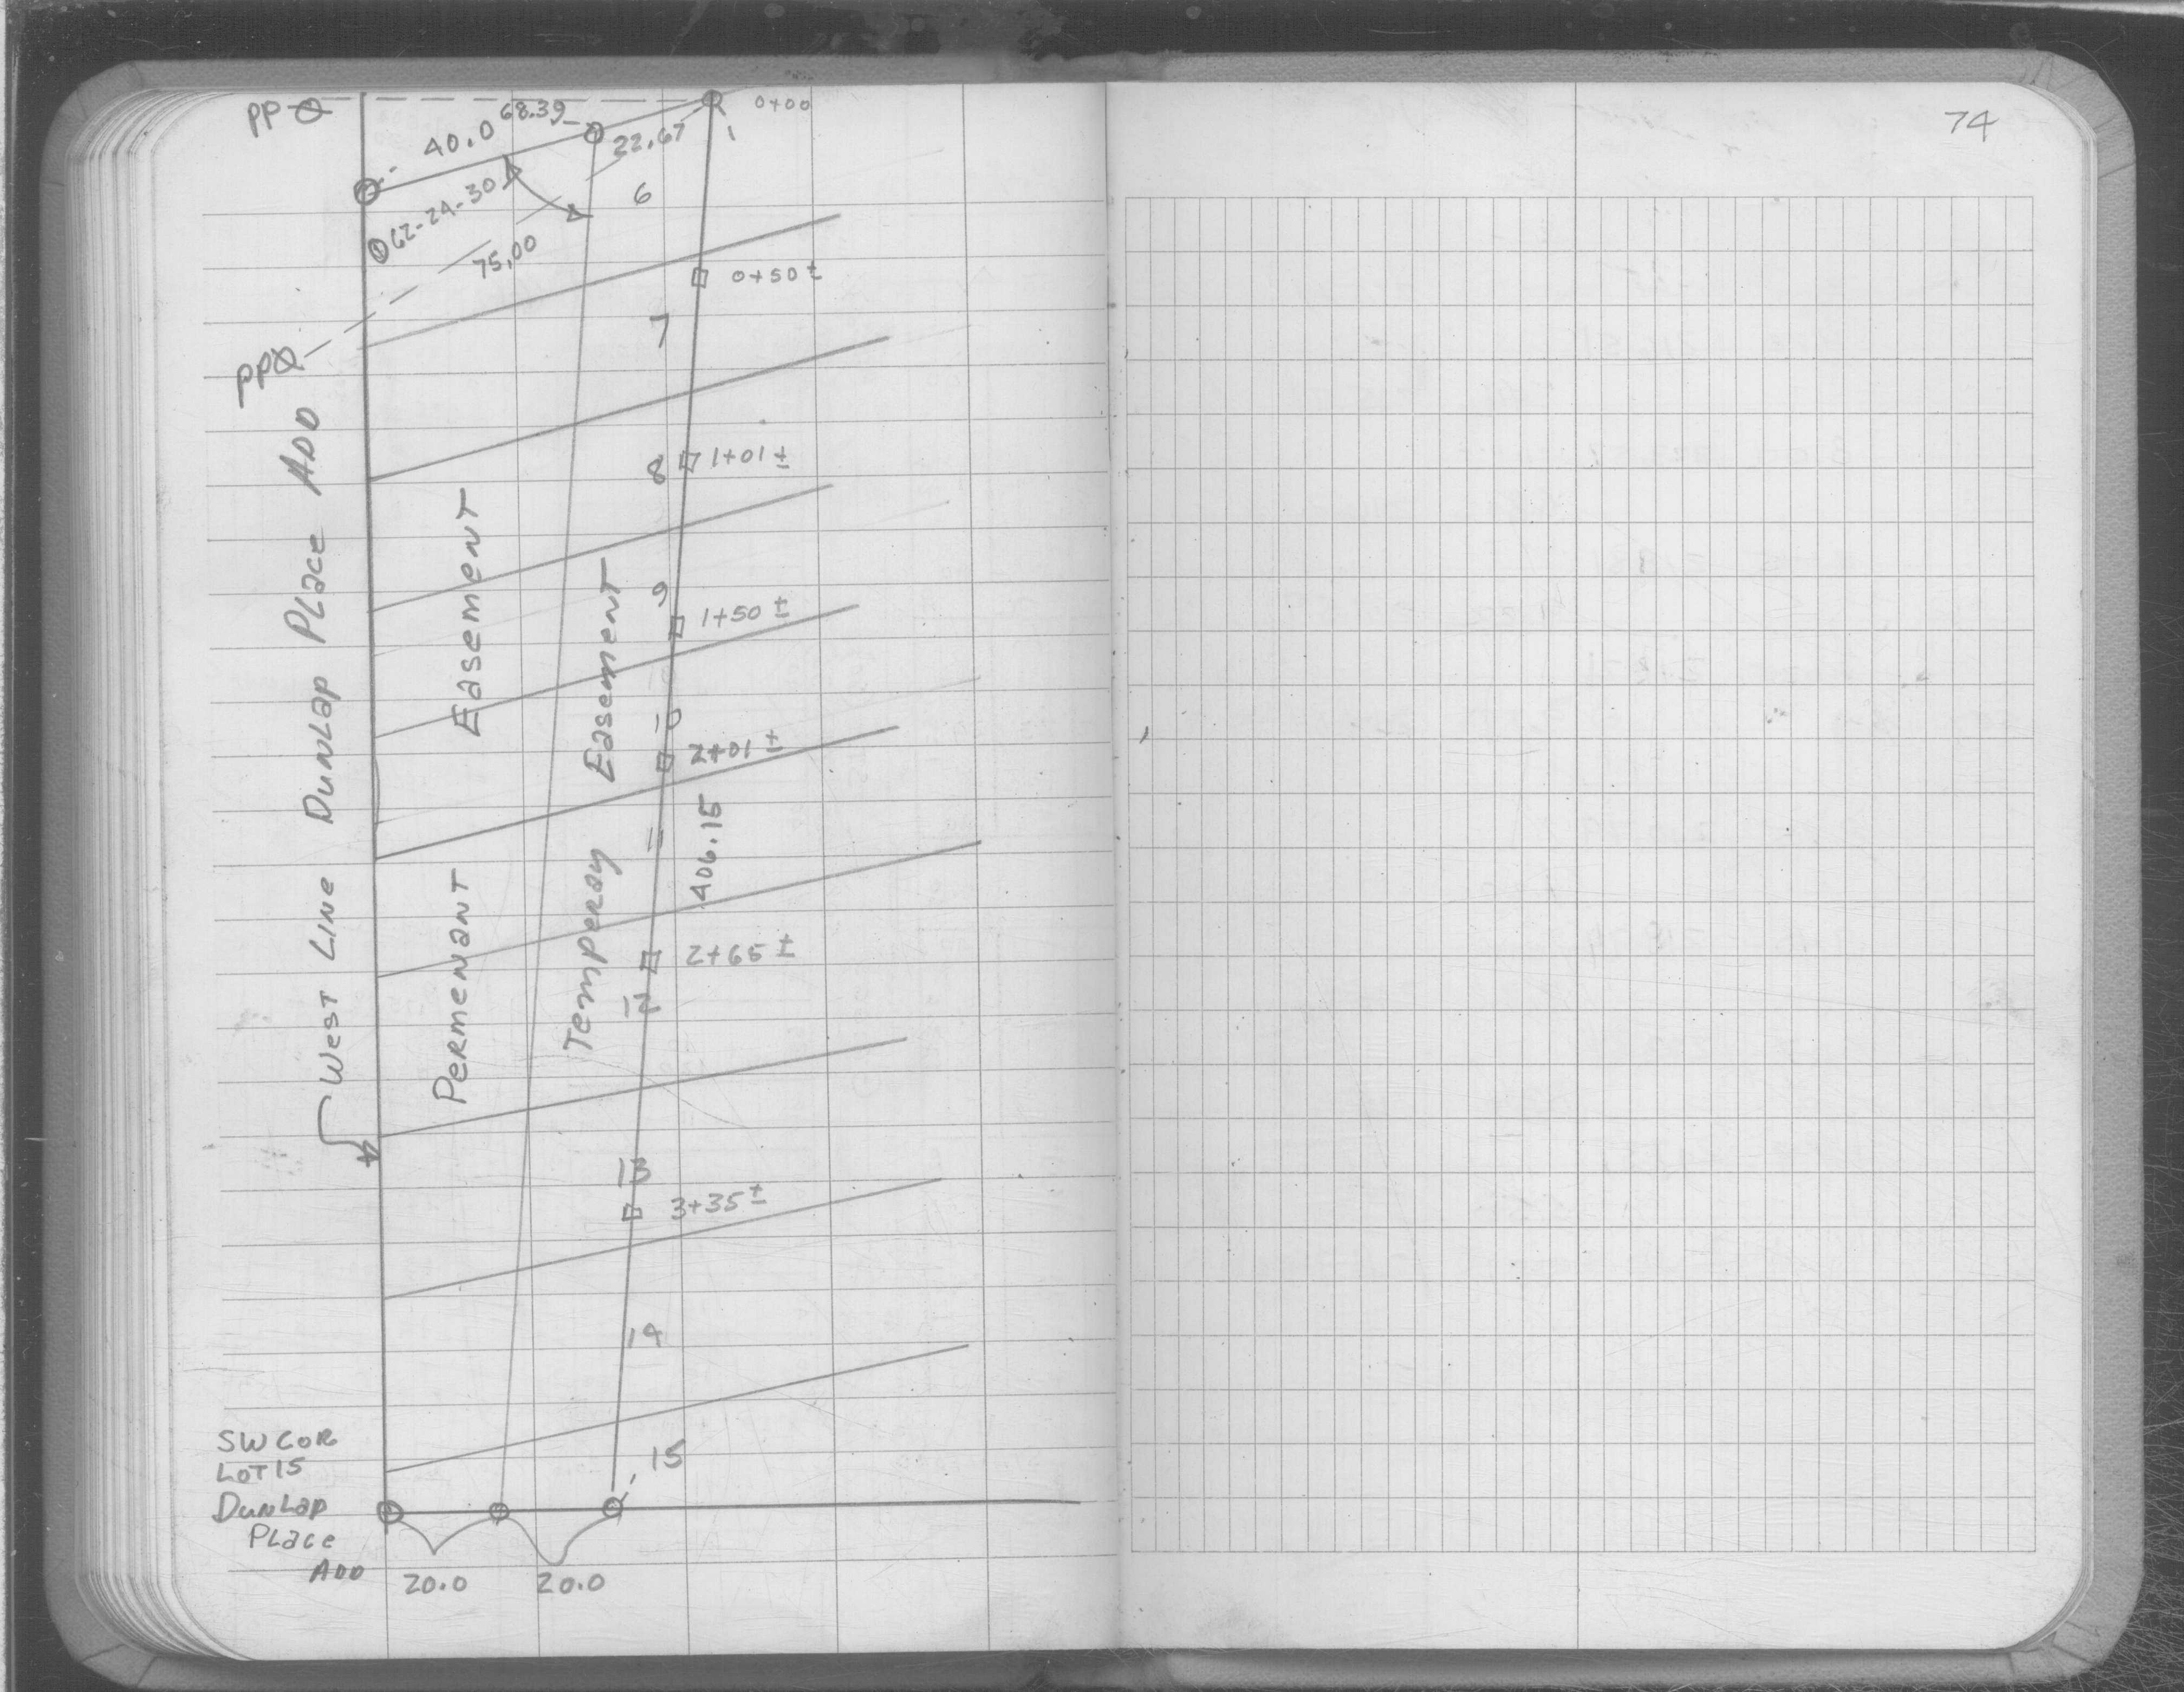 PP
68.39
0+00
74
40.0
22.67
1
62-24-30
6
75.00
0+50±
7
PP
8
1+01±
9
1+50±
10
2+01±
West Line Dunlap Place ADD
Permenant Easement
Temperay Easement
406.15
11
2+65±
12
13
3+35±
14
15
SW COR
LOT 15
DunLap
PLace
ADD
20.0 20.0